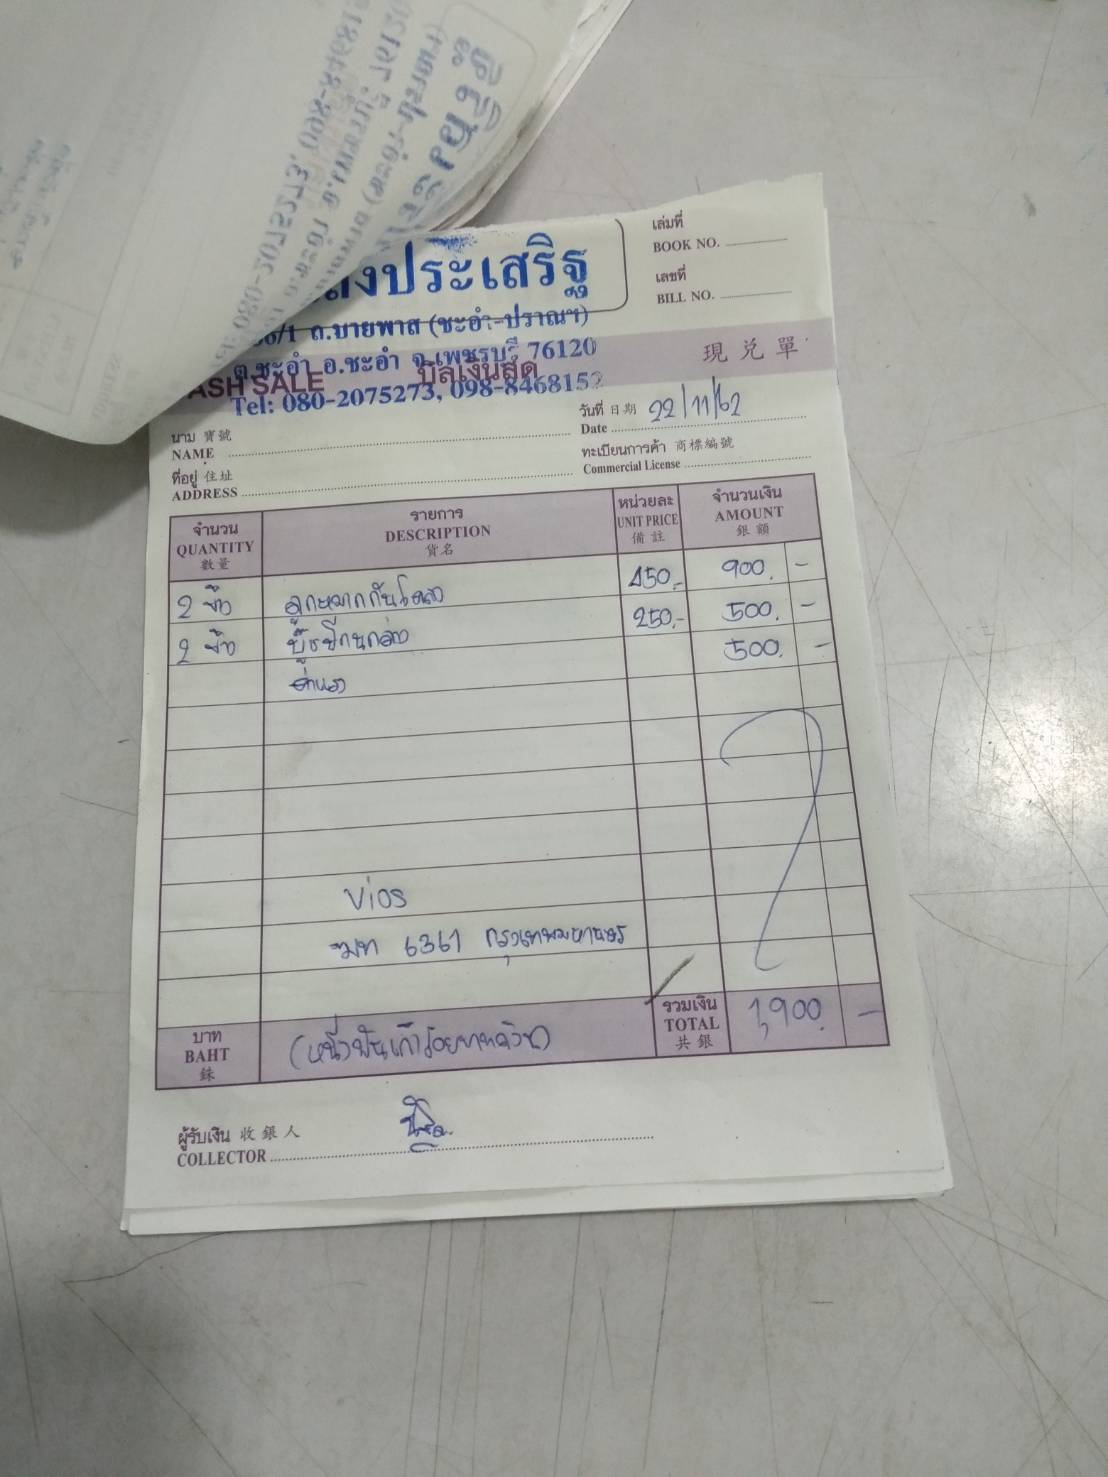 เล่มที่
BOOK NO.
เลขที่
BILL NO.
ประเสริฐ
ถ.บายพาส (ชะอำ-ปราณฯ)
ต.ชะอำ อ.ชะอำ จ.เพชรบุรี 76120
CASH SALE บิลเงินสด 現兌單
Tel: 080-2075273, 098-8468152
นาม 寶號
NAME
วันที่ 日期 22/11/62
Date
ที่อยู่ 住址
ADDRESS
ทะเบียนการค้า 商標編號
Commercial License
จำนวน รายการ หน่วยละ จำนวนเงิน
QUANTITY DESCRIPTION UNIT PRICE AMOUNT
數量 貨名 備註 銀額
2 ข้าง ลูกหมากกันโคลง 450.- 900. -
2 ข้าง บู๊ชปีกนกล่าง 250.- 500. -
ค่าแรง 500. -
Vios
ฆท 6361 กรุงเทพมหานคร
บาท (หนึ่งพันเก้าร้อยบาทถ้วน) รวมเงิน 1,900. -
BAHT TOTAL
銖 共銀
ผู้รับเงิน 收銀人
COLLECTOR